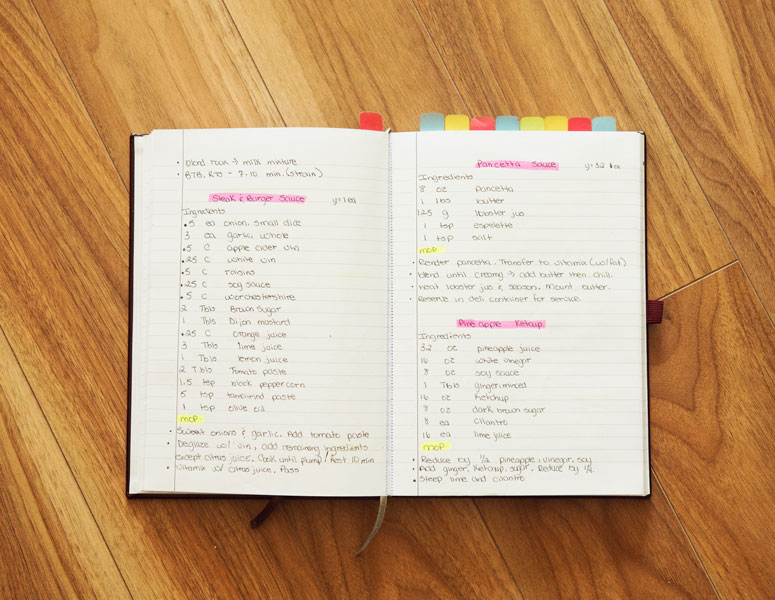 • blend roux → milk mixture
• BTB, RTS - 7-10 min. (strain)
Steak & Burger Sauce y=1 ea
Ingredients
.5 ea onion, small dice
3 ea garlic, whole
.5 C apple cider vin
.25 C white vin
.5 C raisins
.25 C soy sauce
.5 C worchestershire
2 Tbls Brown Sugar
1 Tbls Dijon mustard
.25 C orange juice
3 Tbls lime juice
1 Tbls lemon juice
2 Tbls Tomato paste
1.5 tsp black peppercorn
5 tsp tamarind paste
1 tsp olive oil
MOP
• Sweat onions & garlic. Add tomato paste
• Deglaze w/ vin, add remaining ingredients
except citrus juice. Cook until plump / Rest 10 min
• Vitamix w/ citrus juice. Pass
Pancetta Sauce y=32 oz
Ingredients
8 oz pancetta
1 lbs butter
125 g lobster jus
1 tsp espelette
1 tsp salt
MOP
• Render pancetta. Transfer to vitamix (w/fat)
• Blend until creamy → add butter then chill.
• Heat lobster jus & season. Mount butter.
• Reserve in deli container for service.
Pineapple Ketchup
Ingredients
32 oz pineapple juice
16 oz white vinegar
8 oz soy sauce
1 Tbls ginger, minced
16 oz Ketchup
8 oz dark brown sugar
8 ea cilantro
16 ea lime juice
MOP
• Reduce by 1/2 pineapple, vinegar, soy
• Add ginger, ketchup, sugar. Reduce by 1/4
• Steep lime and cilantro